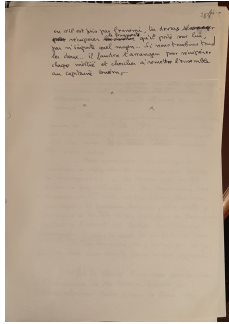 ou s'il est pris par l'ennemi, tu devras
récupérer qu'il porte sur lui,
par n'importe quel moyen. Si vous tombez tous
les deux, il faudra s'arranger pour récupérer
chaque moitié et chercher à remettre l'ensemble
au capitaine